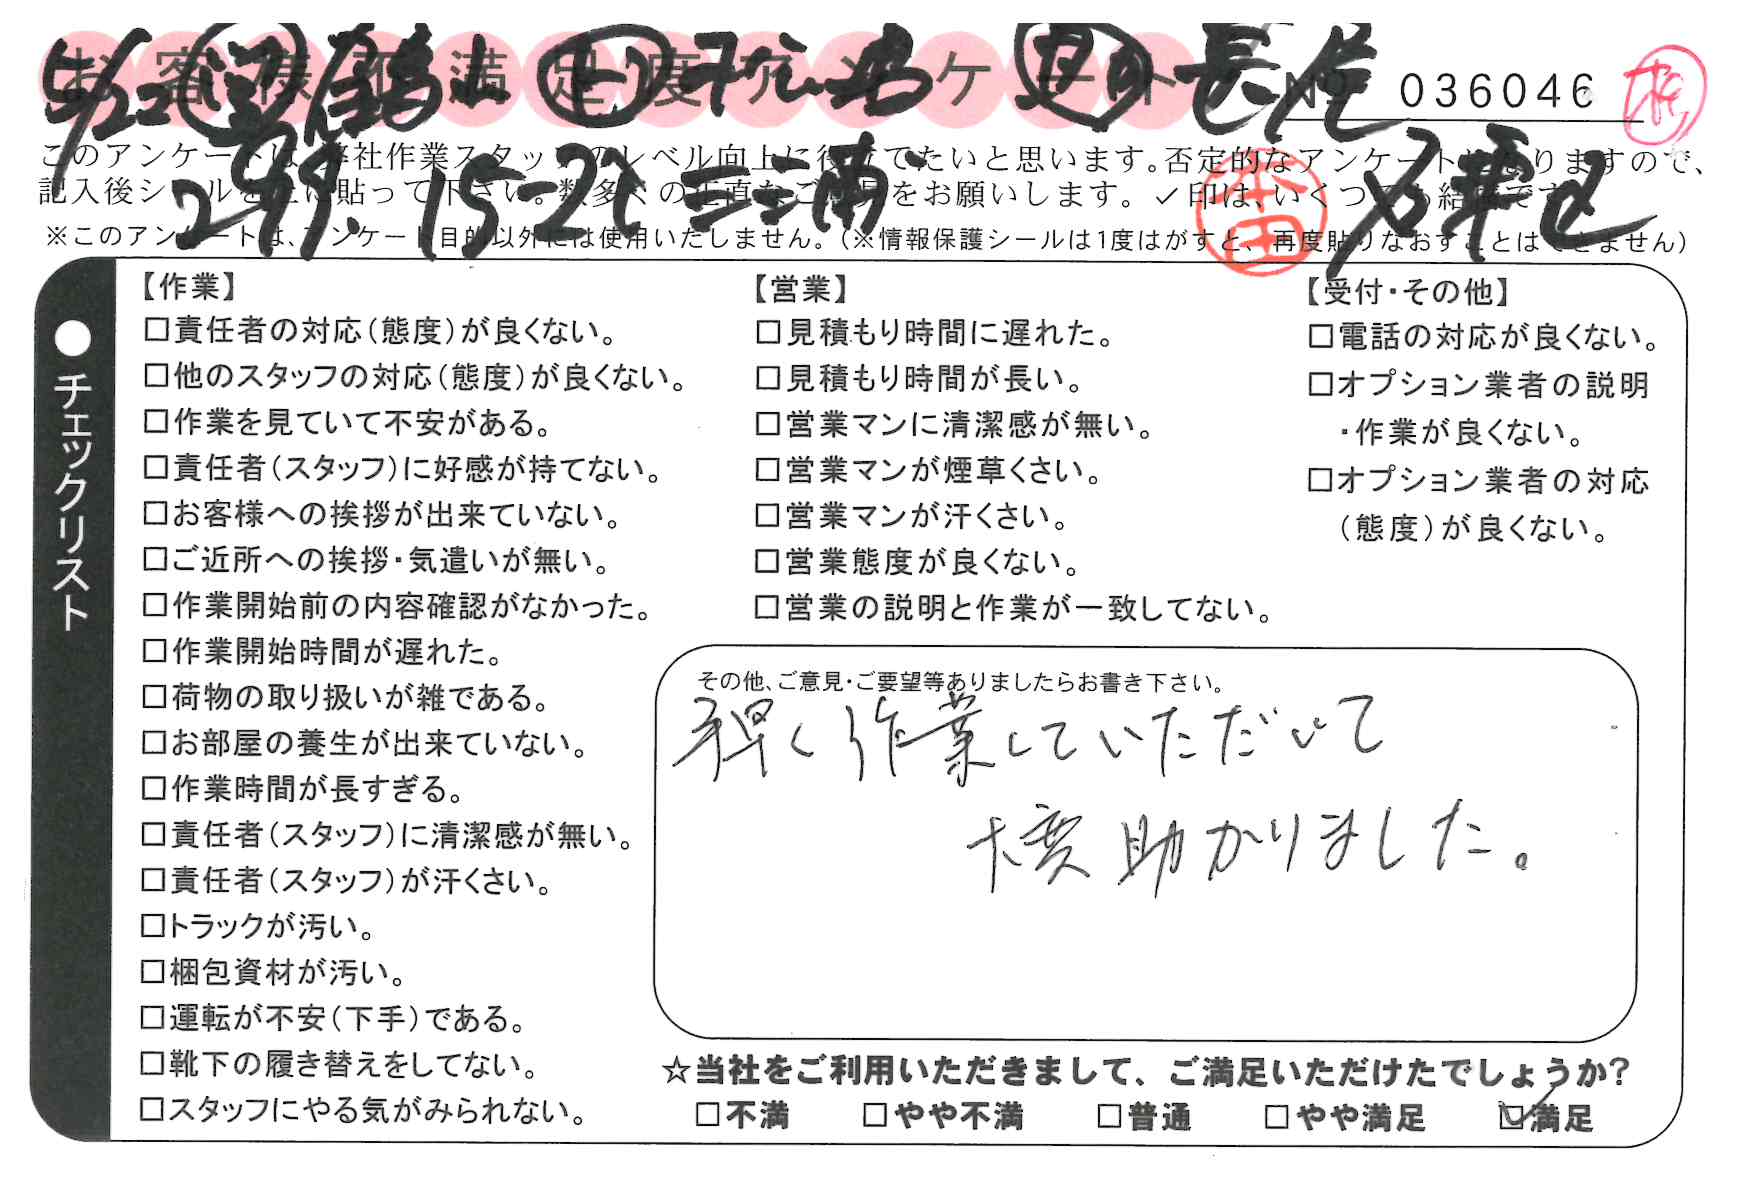 お客様不満足度アンケート № 036046
このアンケートは、弊社作業スタッフのレベル向上に役立てたいと思います。否定的なアンケートとなりますので、
記入後シールを上に貼って下さい。数多くの正直なご意見をお願いします。✓印は、いくつでも結構です。
※このアンケートは、アンケート目的以外には使用いたしません。(※情報保護シールは1度はがすと、再度貼りなおすことはできません)
5/22
299. 15-22 三浦
●チェックリスト
【作業】
□責任者の対応(態度)が良くない。
□他のスタッフの対応(態度)が良くない。
□作業を見ていて不安がある。
□責任者(スタッフ)に好感が持てない。
□お客様への挨拶が出来ていない。
□ご近所への挨拶・気遣いが無い。
□作業開始前の内容確認がなかった。
□作業開始時間が遅れた。
□荷物の取り扱いが雑である。
□お部屋の養生が出来ていない。
□作業時間が長すぎる。
□責任者(スタッフ)に清潔感が無い。
□責任者(スタッフ)が汗くさい。
□トラックが汚い。
□梱包資材が汚い。
□運転が不安(下手)である。
□靴下の履き替えをしてない。
□スタッフにやる気がみられない。
【営業】
□見積もり時間に遅れた。
□見積もり時間が長い。
□営業マンに清潔感が無い。
□営業マンが煙草くさい。
□営業マンが汗くさい。
□営業態度が良くない。
□営業の説明と作業が一致してない。
【受付・その他】
□電話の対応が良くない。
□オプション業者の説明
・作業が良くない。
□オプション業者の対応
(態度)が良くない。
その他、ご意見・ご要望等ありましたらお書き下さい。
早く作業していただいて
大変助かりました。
☆当社をご利用いただきまして、ご満足いただけたでしょうか?
□不満 □やや不満 □普通 □やや満足 ☑満足